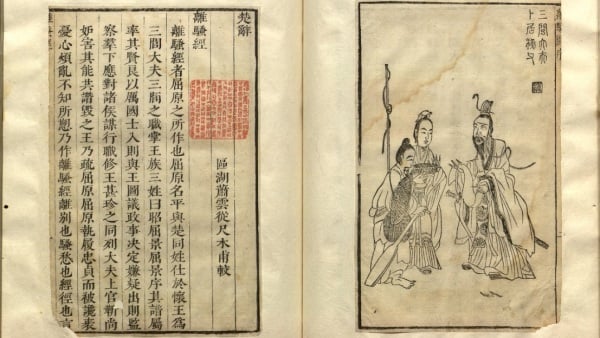 三閭大夫
卜居漁父
楚辭
區湖蕭雲從尺木甫較
離騷經
離騷經者屈原之所作也屈原名平與楚同姓仕於懷王為
三閭大夫三閭之職掌王族三姓曰昭屈景屈原序其譜屬
率其賢良以厲國士入則與王圖議政事決定嫌疑出則監
察羣下應對諸侯謀行職修王甚珍之同列大夫上官靳尚
妬害其能共譖毀之王乃疏屈原屈原執履忠貞而被讒衺
憂心煩亂不知所愬乃作離騷經離別也騷愁也經徑也言